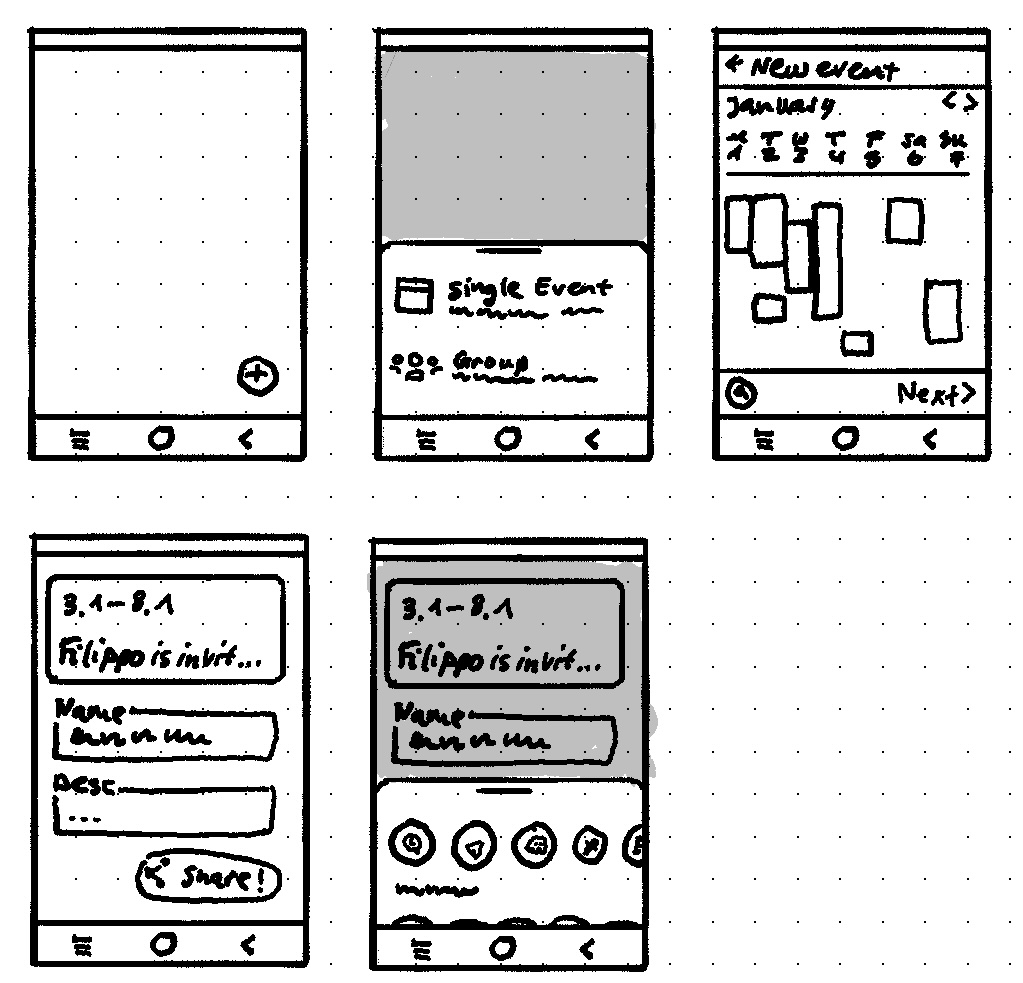 Single Event
Group
← New event
January < >
M T W T F Sa Su
1 2 3 4 5 6 7
Next >
3.1 – 8.1
Filippo is invit...
Name
Desc
...
Share!
3.1 – 8.1
Filippo is invit...
Name